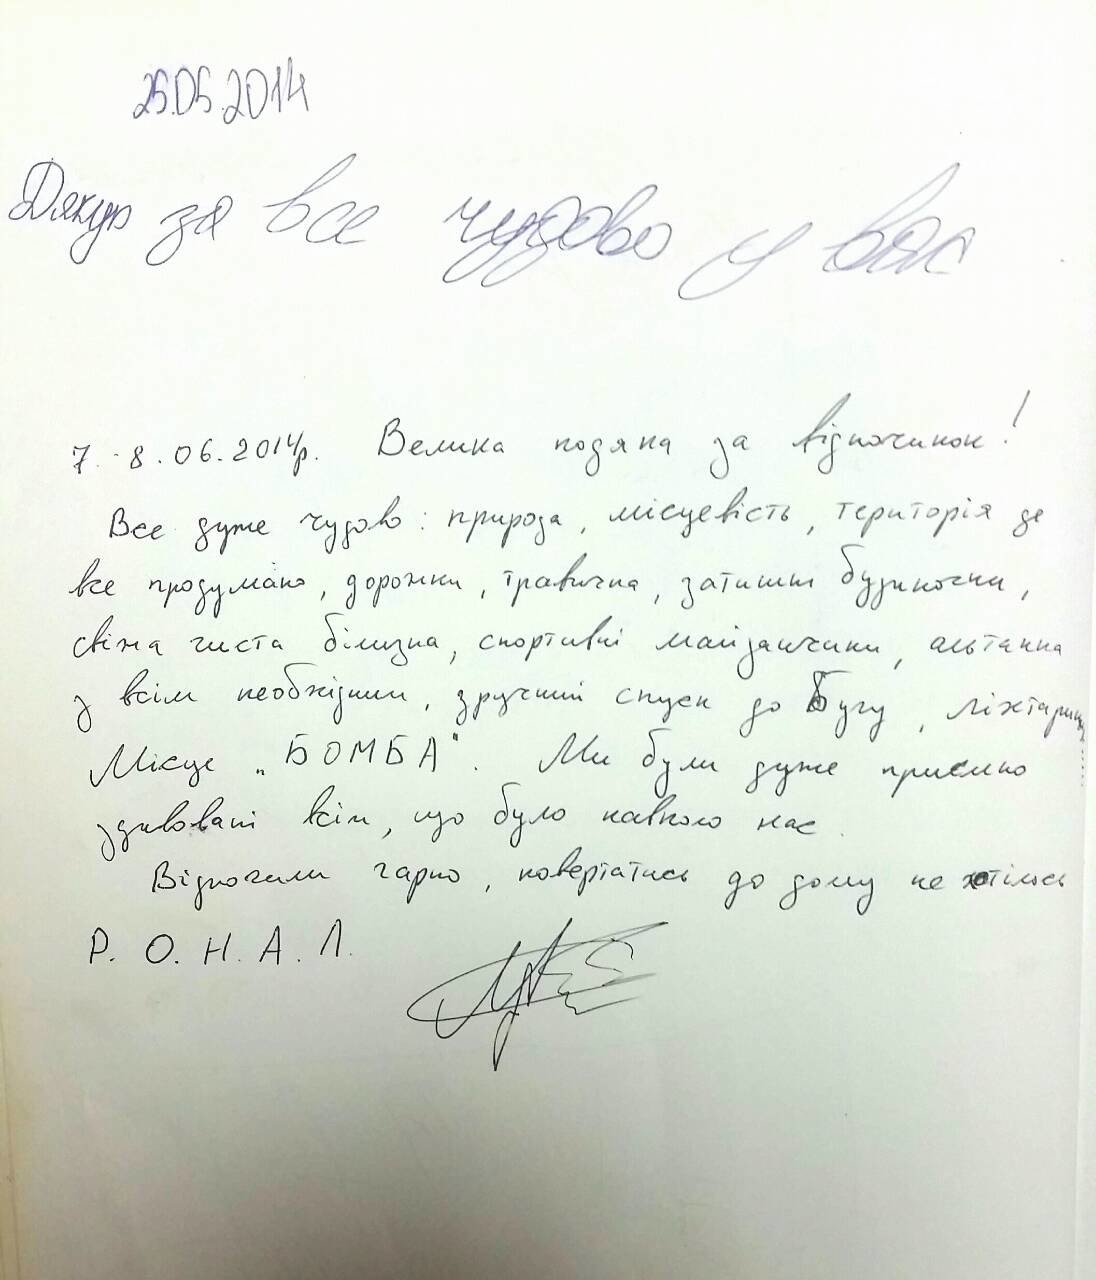 25.05.2014
Дякую за все чудово у вас
7-8.06.2014р. Велика подяка за відпочинок!
Все дуже чудово: природа, місцевість, територія де
все продумано, дорожки, травичка, затишні будиночки,
свіжа чиста білизна, спортивні майданчики, альтанка
з всім необхідним, зручний спуск до Бугу, ліхтарики
Місце „БОМБА". Ми були дуже приємно
здивовані всім, що було навколо нас.
Відпочили гарно, повертатись до дому не хотілось
Р. О. Н. А. Л.